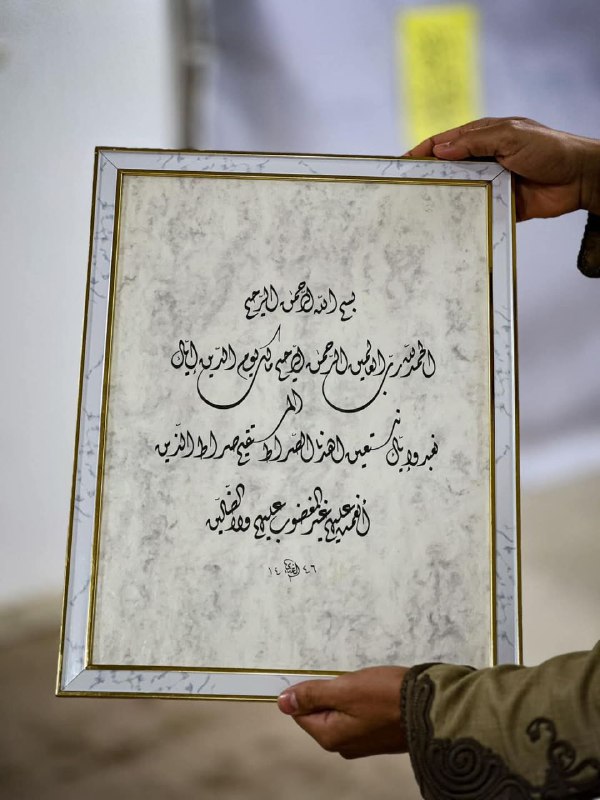 بسم الله الرّحمن الرّحيم
الحمد لله ربّ العالمين الرّحمن الرّحيم مالك يوم الدّين إيّاك
نعبد وإيّاك نستعين اهدنا الصّراط المستقيم صراط الذّين
أنعمت عليهم غير المغضوب عليهم ولا الضّالّين
١٤٤٦